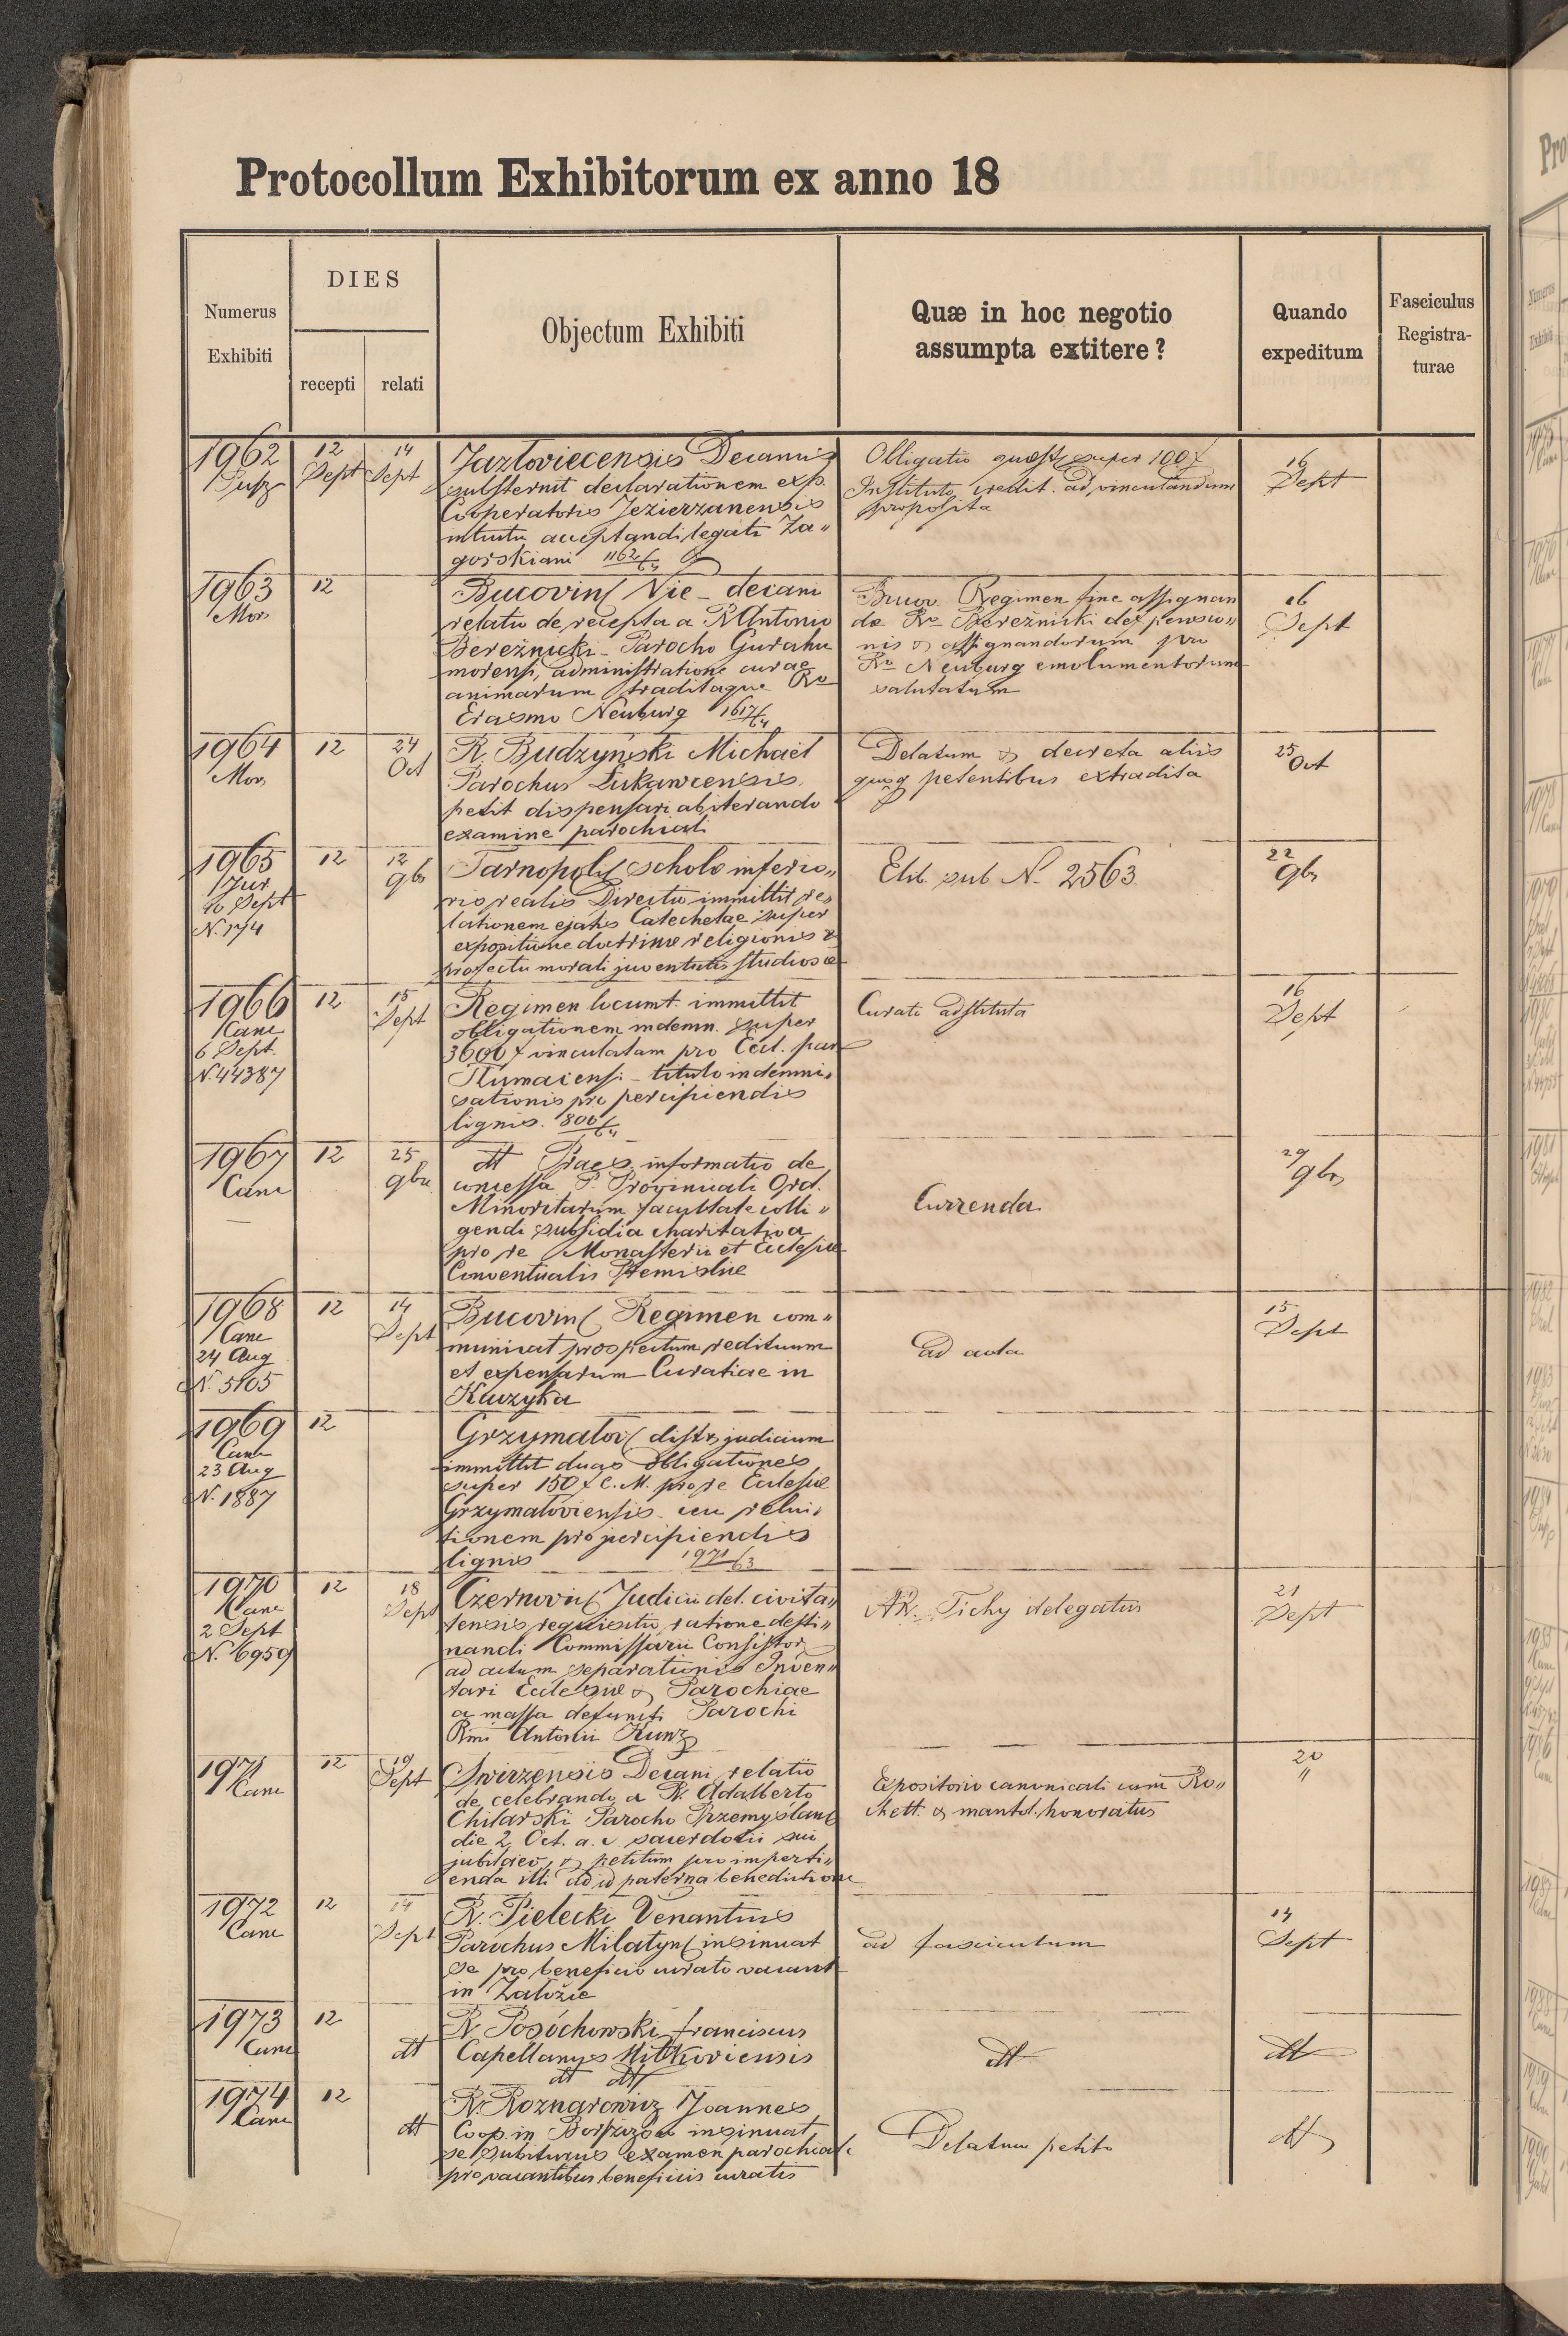 Protocollum Exhibitorum ex anno 18
Numerus
Exhibiti
DIES
recepti
relati
Objectum Exhibiti
Quæ in hoc negotio
assumpta extitere?
Quando
expeditum
Fasciculus
Registra-
turae
1962
12
Sept
14
Sept
Jaztoviecensis Decanus
substernit declarationem exp.
Cooperatoris Jezierzanensis
intuitu acceptandi legati Za„
gorskiani 1162/64
Obligatio quæst. super 100 f
Instituto credit. ad vinculandum
proposita
16
Sept
1963
Mors
12
Bucovin Vic-decani
relatio de recepta a R Antonio
Bereżnicki Parocho Gurahu
morensi, administratione curae
animarum traditaque Ro
Erasmo Neuburg 1617/64
Bucov. Regimen fine assignan
dae Ro Bereżnicki def. pensio„
nis & assignandorum pro
Ro Neuburg emolumentorum
salutatum
16
Sept
1964
Mors
12
24
Oct
R. Budzyński Michaël
Parochus Łukawcensis
petit dispensari ab iterando
examine parochiali
Delatum & decreta aliis
quoq petentibus extradita
25
Oct
1965
Jur
16 Sept
N. 174
12
12
9br
Tarnopol scholæ inferio„
ris realis Directio immittit re„
lationem ejatis Catechetae super
expositione doctrinæ religionis &
profectu morali juventutis studiosæ
Elib. sub N. 2563
22
9br
1966
Canc
6 Sept.
N. 44387
12
15
Sept
Regimen locumt. immittit
obligationem indemn. super
3600 f vinculatam pro Eccl. par
Tlumacensi titulo indemni„
sationis pro percipiendis
lignis. 800/64
Curato adstituta
16
Sept
1967
Canc
12
25
9br
dt Praes. informatio de
concessa P. Provinciali Ord.
Minoritarum facultate colli„
gendi subsidia charitativa
pro re Monasterii et Ecclesiæ
Conventualis Premisliæ
Currenda
29
9br
1968
Canc
24 Aug
N. 5105
12
14
Sept
Bucovin Regimen com„
municat prospectum redituum
et expensarum Curatiae in
Kaczyka
ad acta
15
Sept
1969
Canc
23 Aug
N. 1887
12
Grzymałov distr. judicium
immittit duas obligationes
super 150 f C. M. pro re Ecclesiæ
Grzymałoviensis ceu relui„
tionem pro percipiendis
lignis 1971/63
1970
Canc
2 Sept
N. 6959
12
18
Sept
Czernovic Judicii del. civita„
tensis requisitio ratione desti„
nandi Commissarii Consistor.
ad actum separationis Inven„
tari Ecclesiæ & Parochiae
a massa defuncti Parochi
Rmi Antonii Kunz
AR. Tichy delegatus
21
Sept
1971
Canc
12
19
Sept
Swirzensis Decani relatio
de celebrando a R. Adalberto
Chilarski Parocho Przemyślan
die 2 Oct. a. c. sacerdotii sui
jubilaeo, & petitum pro imperti„
enda illi ad id paterna benedictione
Expositorio canonicali cum Ro„
chett. & mantol. honoratus
20
„
1972
Canc
12
14
Sept
R. Pielecki Venantius
Parochus Milatyn insinuat
se pro beneficio curato vacant
in Załoźce
ad fasciculum
14
Sept
1973
Canc
12
dt
R. Posóchowski Franciscus
Capellanus Mitkoviensis
dt dt
dt
dt
1974
Canc
12
dt
R. Roznarowicz Joannes
Coop. in Borszczów insinuat
se subiturus examen parochiale
pro vacantibus beneficiis curatis
Delatum petito
dt